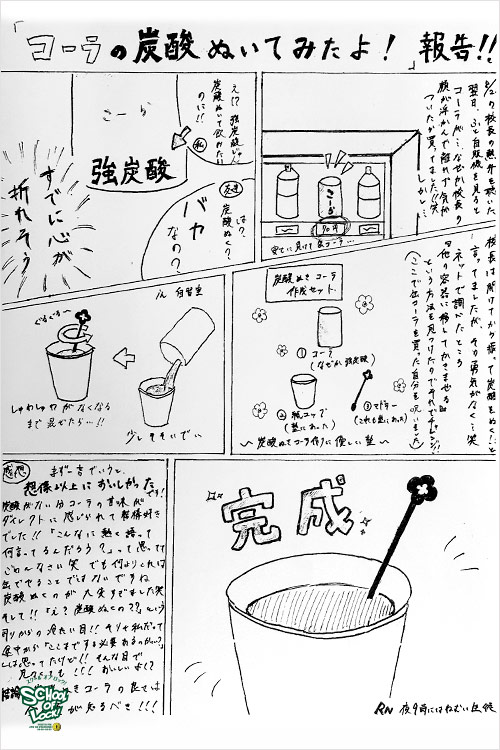 「コーラの炭酸ぬいてみたよ!」報告!!
翌日、ふと自販機を見ると
コーラが…なぜか校長の
顔が浮かんで離れず気が
ついたら買ってました!!笑
しかし…
こーら
え!? 強炭酸じゃん!
炭酸ぬいて飲みたい
のに!!
私
強炭酸
友達
は?
炭酸ぬく?
バカ
なの?
すでに心が
折れそう
校長は開けてから振って炭酸をぬく!と
言ってましたが、その勇気がなく…笑
ネットで調べたところ
『他の容器に移してかきまぜる』
という方法を見つけたのでそれでチレンジ!!
(ここで缶コーラを買った自分を呪いました)
炭酸ぬき コーラ
作成セット
① コーラ
(なぜか強炭酸)
② 紙コップ
(塾にあった)
③ マドラー
(これも塾にあった)
〜炭酸ぬきコーラ作りに優しい塾〜
in 自習室
少しずつそそいでぃ
ぐるぐる〜
しゅわしゅわがなくなる
まで混ぜたら…!!
完成
感想
まず一言でいうと、
想像以上においしかった
です!
炭酸がない分コーラの甘味が
ダイレクトに感じられて結構好き
でした!!「こんなに熱く語って
何言ってるんだろう?」って思ってて
ごめんなさい笑 でも何よりこれは
缶でやることではないですね
炭酸ぬくのが大変すぎました笑
そして!!「え?炭酸ぬくの??」という
周りからの冷たい目!!
途中から「ここまでする必要あるのかい?」
とは思ってたけど!!そんな目で
おいしいよ!?
きコーラの良さは
が知るべき!!!
SCHOOL OF LOCK!
RN 夜9時にはねむい丘